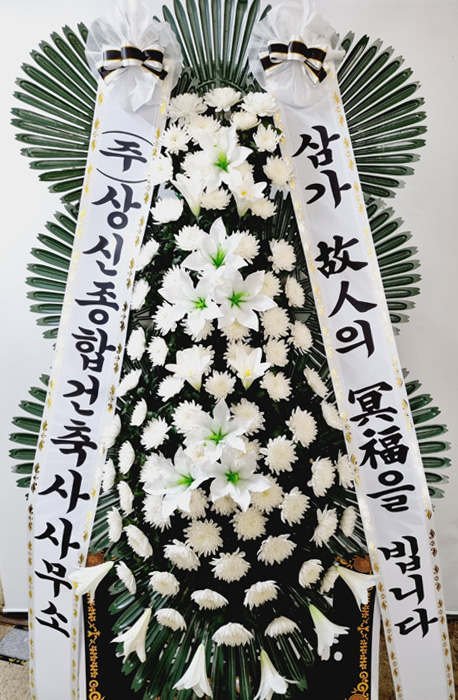 삼가 故人의 冥福을 빕니다
(주)상신종합건축사사무소